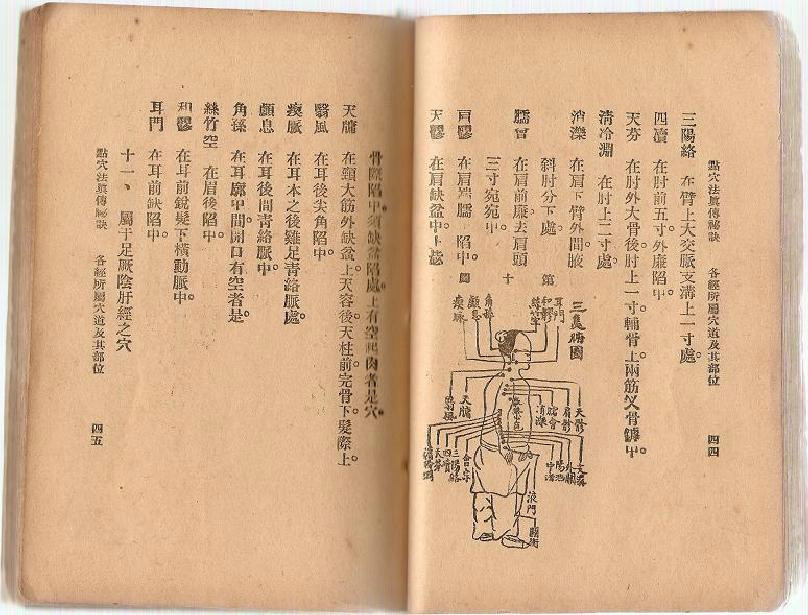 點穴法眞傳秘訣　各經所屬穴道及其部位　四四
三陽絡　在臂上大交脈支溝上一寸處。
四瀆　在肘前五寸外廉陷中。
天井　在肘外大骨後肘上一寸。輔骨上兩筋叉骨罅中。
清冷淵　在肘上二寸處。
消濼　在肩下臂外間腋
斜肘分下處
臑會　在肩前廉去肩頭
三寸宛宛中。
肩髎　在肩端臑　陷中。
天髎　在肩缺盆中上毖
第十圖
三焦病圖
耳門
和髎
絲竹空
角孫
顱息
瘈脈
天牖
翳風
天髎
肩髎
臑會
消濼
支溝
外關
陽池
中渚
會宗
三陽絡
四瀆
天井
清冷淵
液門
關衝
骨際陷中須缺盆陷處。上有空起肉者是穴。
天牖　在頸大筋外缺盆上。天容後。天柱前完骨下。髮際上
翳風　在耳後尖角陷中。
瘈脈　在耳本之後雞足青絡脈處。
顱息　在耳後間青絡脈中。
角孫　在耳廓中間開口有空者是。
絲竹空　在眉後陷中。
和髎　在耳前銳髮下橫動脈中。
耳門　在耳前缺陷中。
十一、屬于足厥陰肝經之穴
點穴法眞傳秘訣　各經所屬穴道及其部位　四五